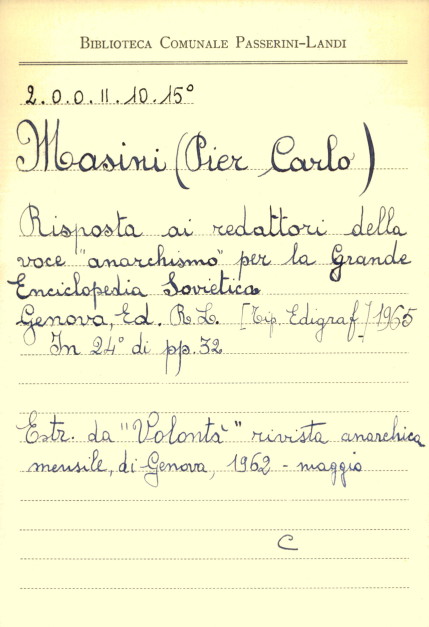 BIBLIOTECA COMUNALE PASSERINI-LANDI
2.0.0.II.10.15°
Masini (Pier Carlo)
Risposta ai redattori della
voce "anarchismo" per la Grande
Enciclopedia Sovietica
Genova, Ed. R.L. [Tip. Edigraf] 1965
In 24° di pp. 32
Estr. da "Volontà" rivista anarchica
mensile, di Genova, 1962 - maggio
C